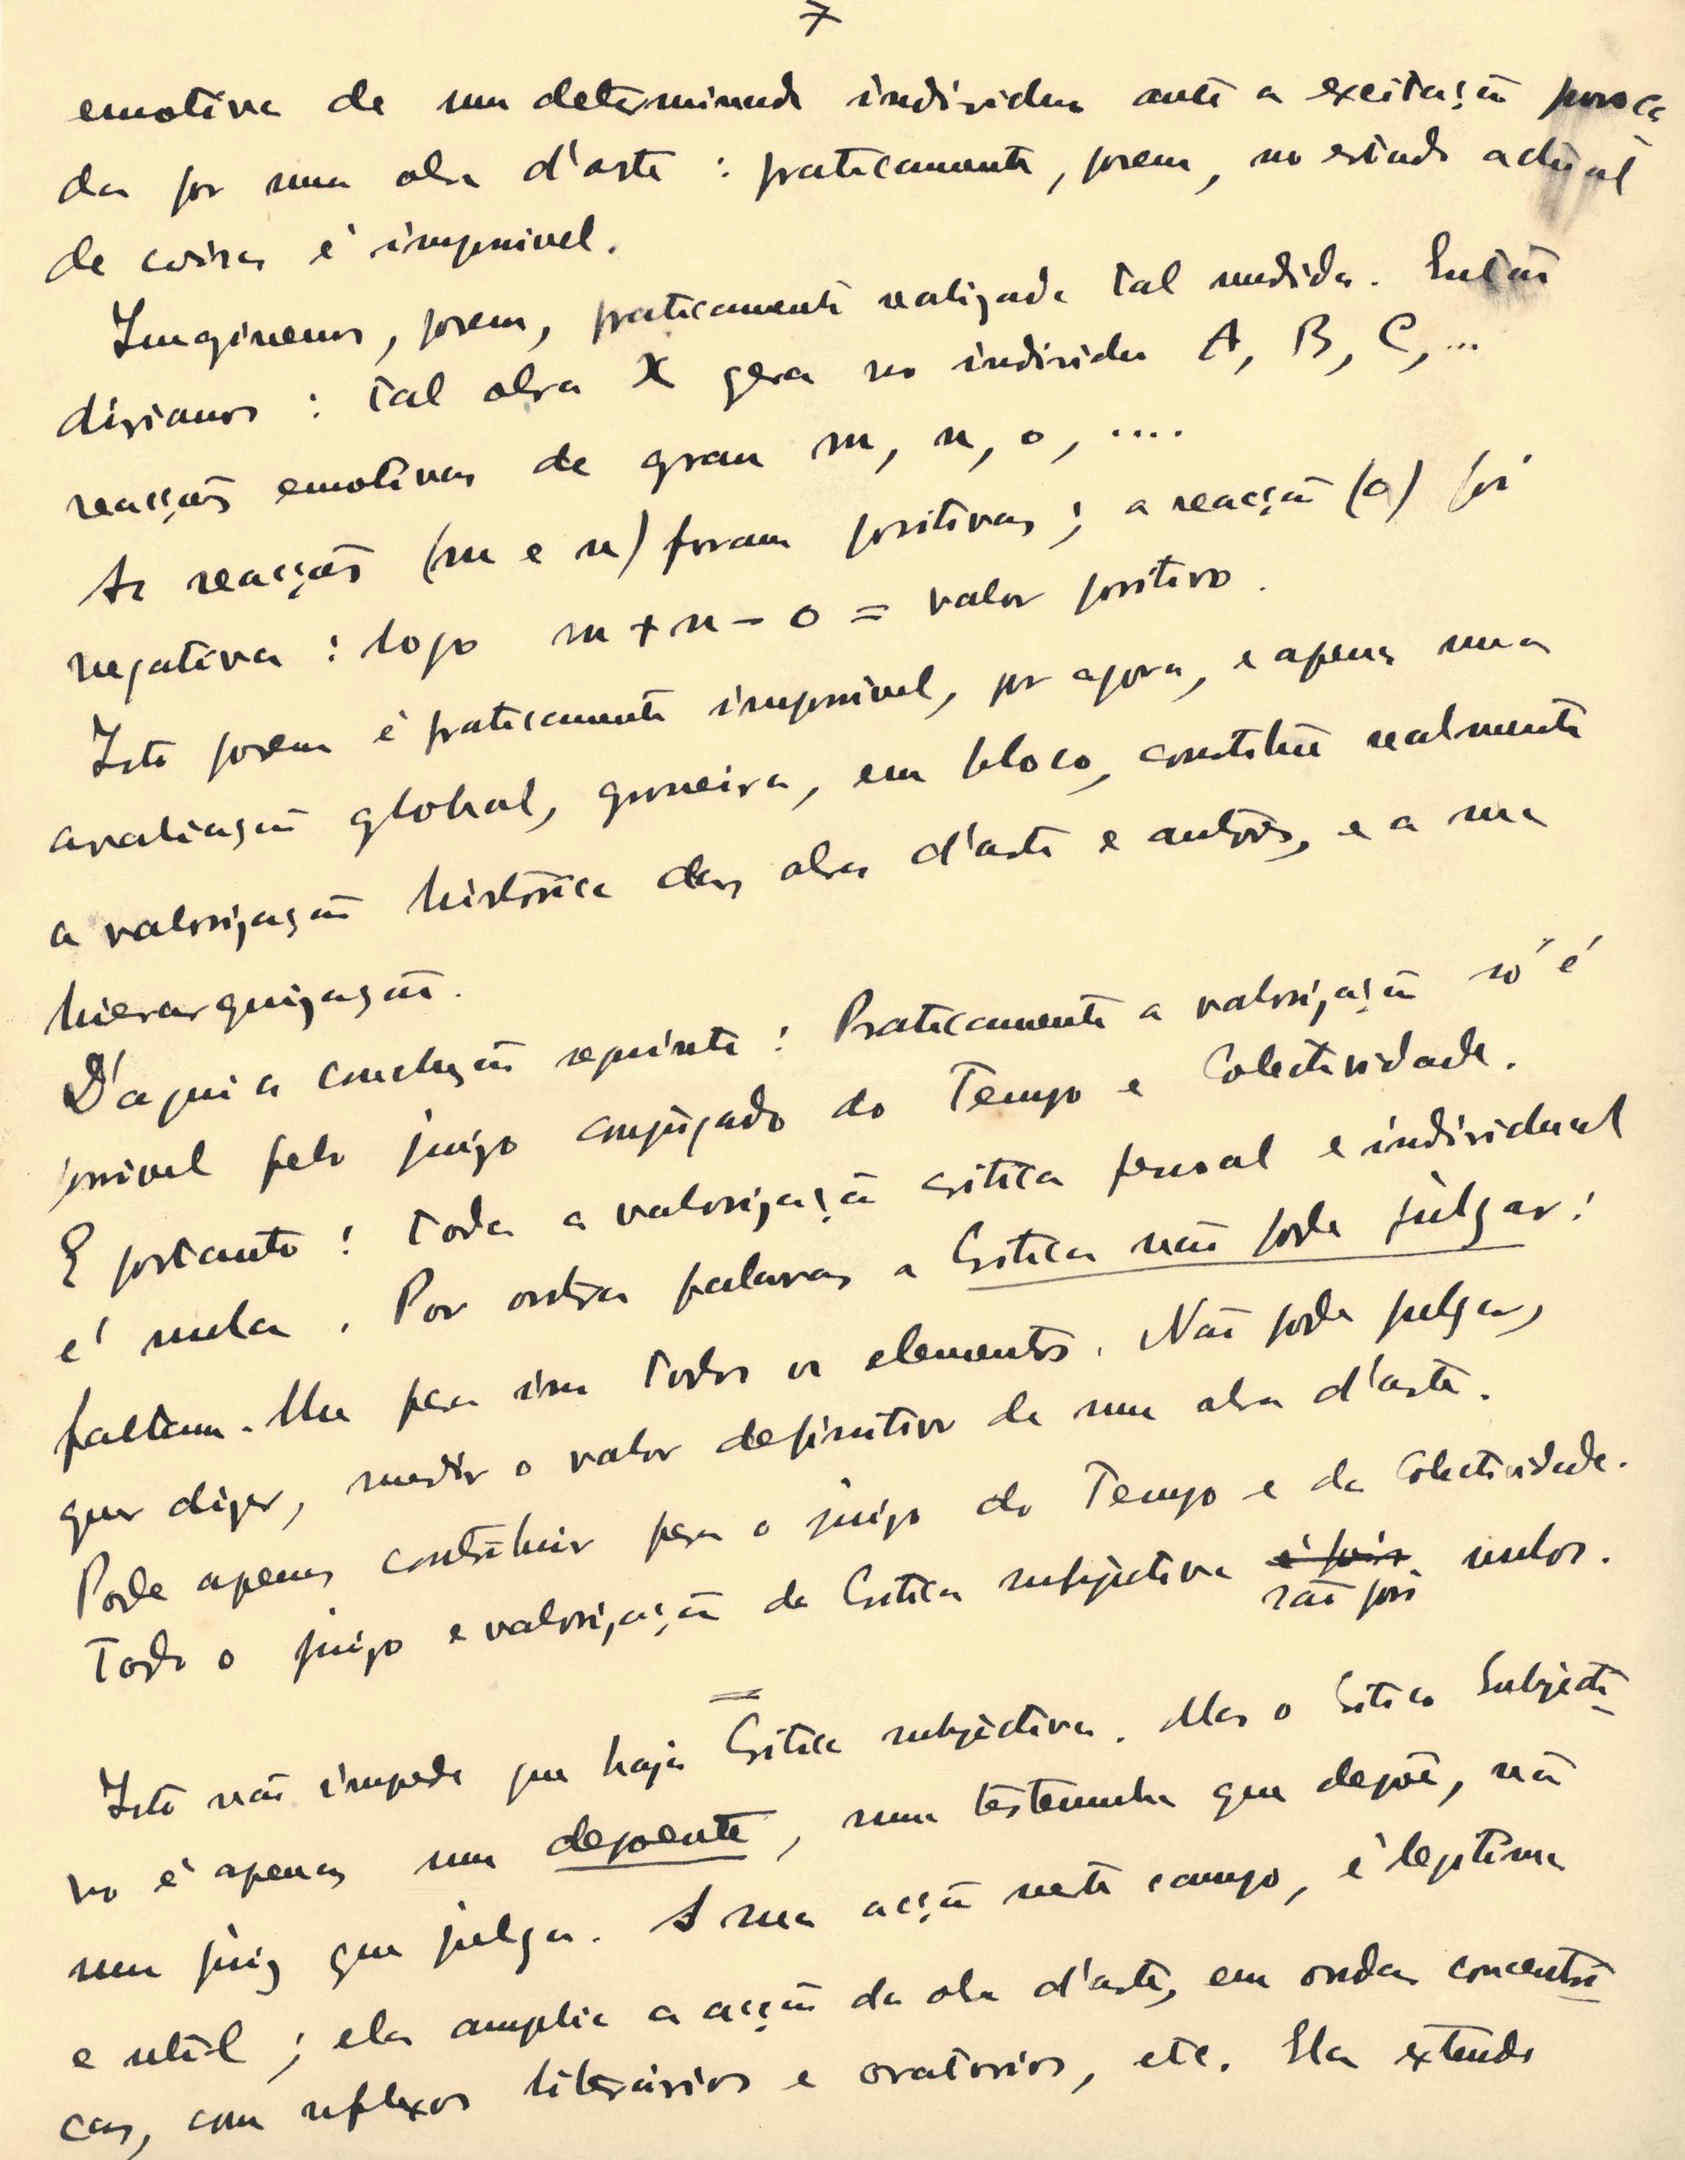 7
emotiva de um determinado individuo ante a excitação provoca
da por uma obra d'arte : praticamente, porem, no estado actual
de coisas é impossivel.
Imaginemos, porem, praticamente realizada tal medida. Então
diriamos : tal obra X gera no individuo A, B, C, ...
reacções emotivas de grau m, n, o, ....
As reacções (m e n) foram positivas ; a reacção (o) foi
negativa : logo m + n - o = valor positivo.
Isto porem é praticamente impossivel, por agora, e apenas uma
avaliação global, grosseira, em bloco, constitue realmente
a valorização histórica das obras d'arte e autores, e a sua
hierarquização.
D'aqui a conclusão seguinte : Praticamente a valorização só é
possivel pelo juizo conjugado do Tempo e Colectividade.
E portanto : toda a valorização critica pessoal e individual
é nula. Por outras palavras a Critica não pode julgar :
faltam-lhe para isso todos os elementos. Não pode julgar,
quer dizer, medir o valor definitivo de uma obra d'arte.
Pode apenas contribuir para o juizo do Tempo e da Colectividade.
Todo o juizo e valorização da Critica subjectiva é pois nulos.
são pois
=
Isto não impede que haja Critica subjectiva. Mas o Critico Subjecti-
vo é apenas um depoente, uma testemunha que depõe, não
um juiz que julga. A sua acção neste campo, é legitima
e util ; ela amplia a acção da obra d'arte, em ondas concentri-
cas, com reflexos literários e oratorios, etc. Ela extende